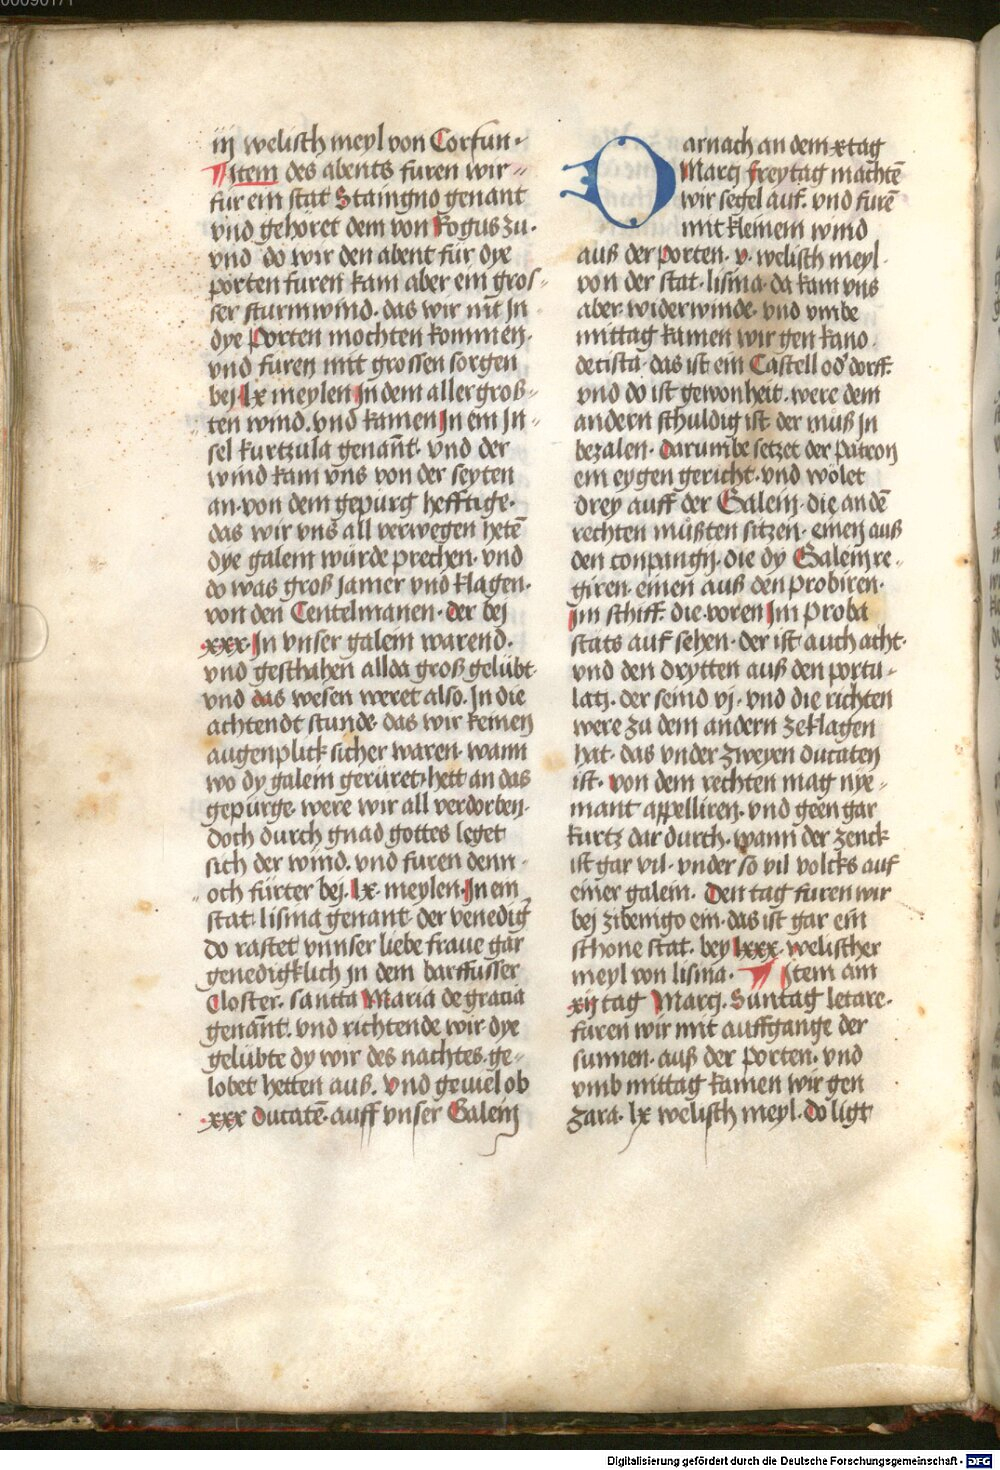 00090171
iij welisch meyl von Corfun·
¶ Item des abents furen wir
fur ein stat Staingno genant
vnd gehöret dem von Rogus zu·
vnd do wir den abent für dye
porten furen kam aber ein gros-
ser sturmwind· das wir nit In
dye Porten mochten kommen·
vnd furen mit grossen sorgen
bej lx meylen In dem aller groß-
ten wind· vnd kamen In ein In-
sel kurtzula genañt· vnd der
wind kam vns von der seyten
an von dem gepürg hefftige·
das wir vns all verwegen hetē
dye galein wurde prechen· vnd
do was groß jamer vnd klagen·
von den Centelmanen· der bej
xxx· In vnser galein warend·
vnd geschahen allda groß gelübt·
vnd das wesen weret also· In die
achtendt stunde· das wir keinen
augenplick sicher waren· wann
wo dy galein gerüret hett an das
gepürge· were wir all verdorben·
Doch durch gnad gottes leget
sich der wind· vnd furen denn-
och fürter bej· lx· meylen· In ein
stat· lisina genant· der venedig
do rastet vnnser liebe fraue gar
genedigklich jn dem barffusser
Closter· sancta Maria de gracia
genañt· vnd richtende wir dye
gelübte dy wir des nachtes ge-
lobet hetten auß· vnd geuiel ob
xxx ducatē· auff vnser Galein
Darnach an dem x tag
Marcij freytag machtē
wir segel auf· vnd furē
mit kleinem wind
auß der porten· v· welisch meyl·
von der stat· lisina· da kam vns
aber widerwinde· vnd vmbe
mittag kamen wir gen kano
detista· das ist ein Castell od' dorff·
vnd do ist gewonheit· were dem
andern schuldig ist der muß jn
bezalen· darumbe setzet der patron
ein eygen gericht· vnd wölet
drey auff der Galein· die an dē
rechten müßten sitzen· einen auß
den conpangij· die dy Galein re-
giren· einen auß den probiren·
Im schiff· die voren Im Proba
stats auf sehen· der ist auch acht·
vnd den drytten auß den portu-
latj· der seind vj· vnd die richten
were zu dem andern zeklagen
hat· das vnder zweyen ducaten
ist· von dem rechten mag nye-
mant appelliren· vnd geen gar
kurtz dar durch· wann der zenck
ist gar vil· vnder so vil volcks auf
einer galein· Den tag furen wir
bej zibenigo ein· das ist gar ein
schone stat· bey lxxx· welischer
meyl von lisina· ¶ Item am
xij tag Marcj· Suntag letare·
furen wir mit auffgange der
sunnen· auß der porten· vnd
vmb mittag kamen wir gen
zara· lx welisch meyl· Do ligt
Digitalisierung gefördert durch die Deutsche Forschungsgemeinschaft - DFG